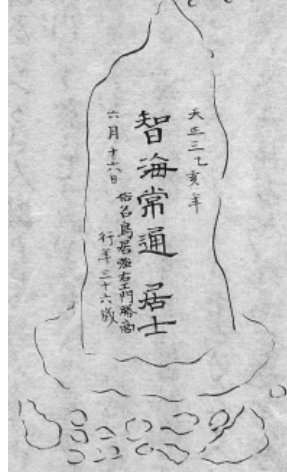 天正三乙亥年
智海常通居士
六月十六日
俗名鳥居强右エ門勝商
行年三十六歳